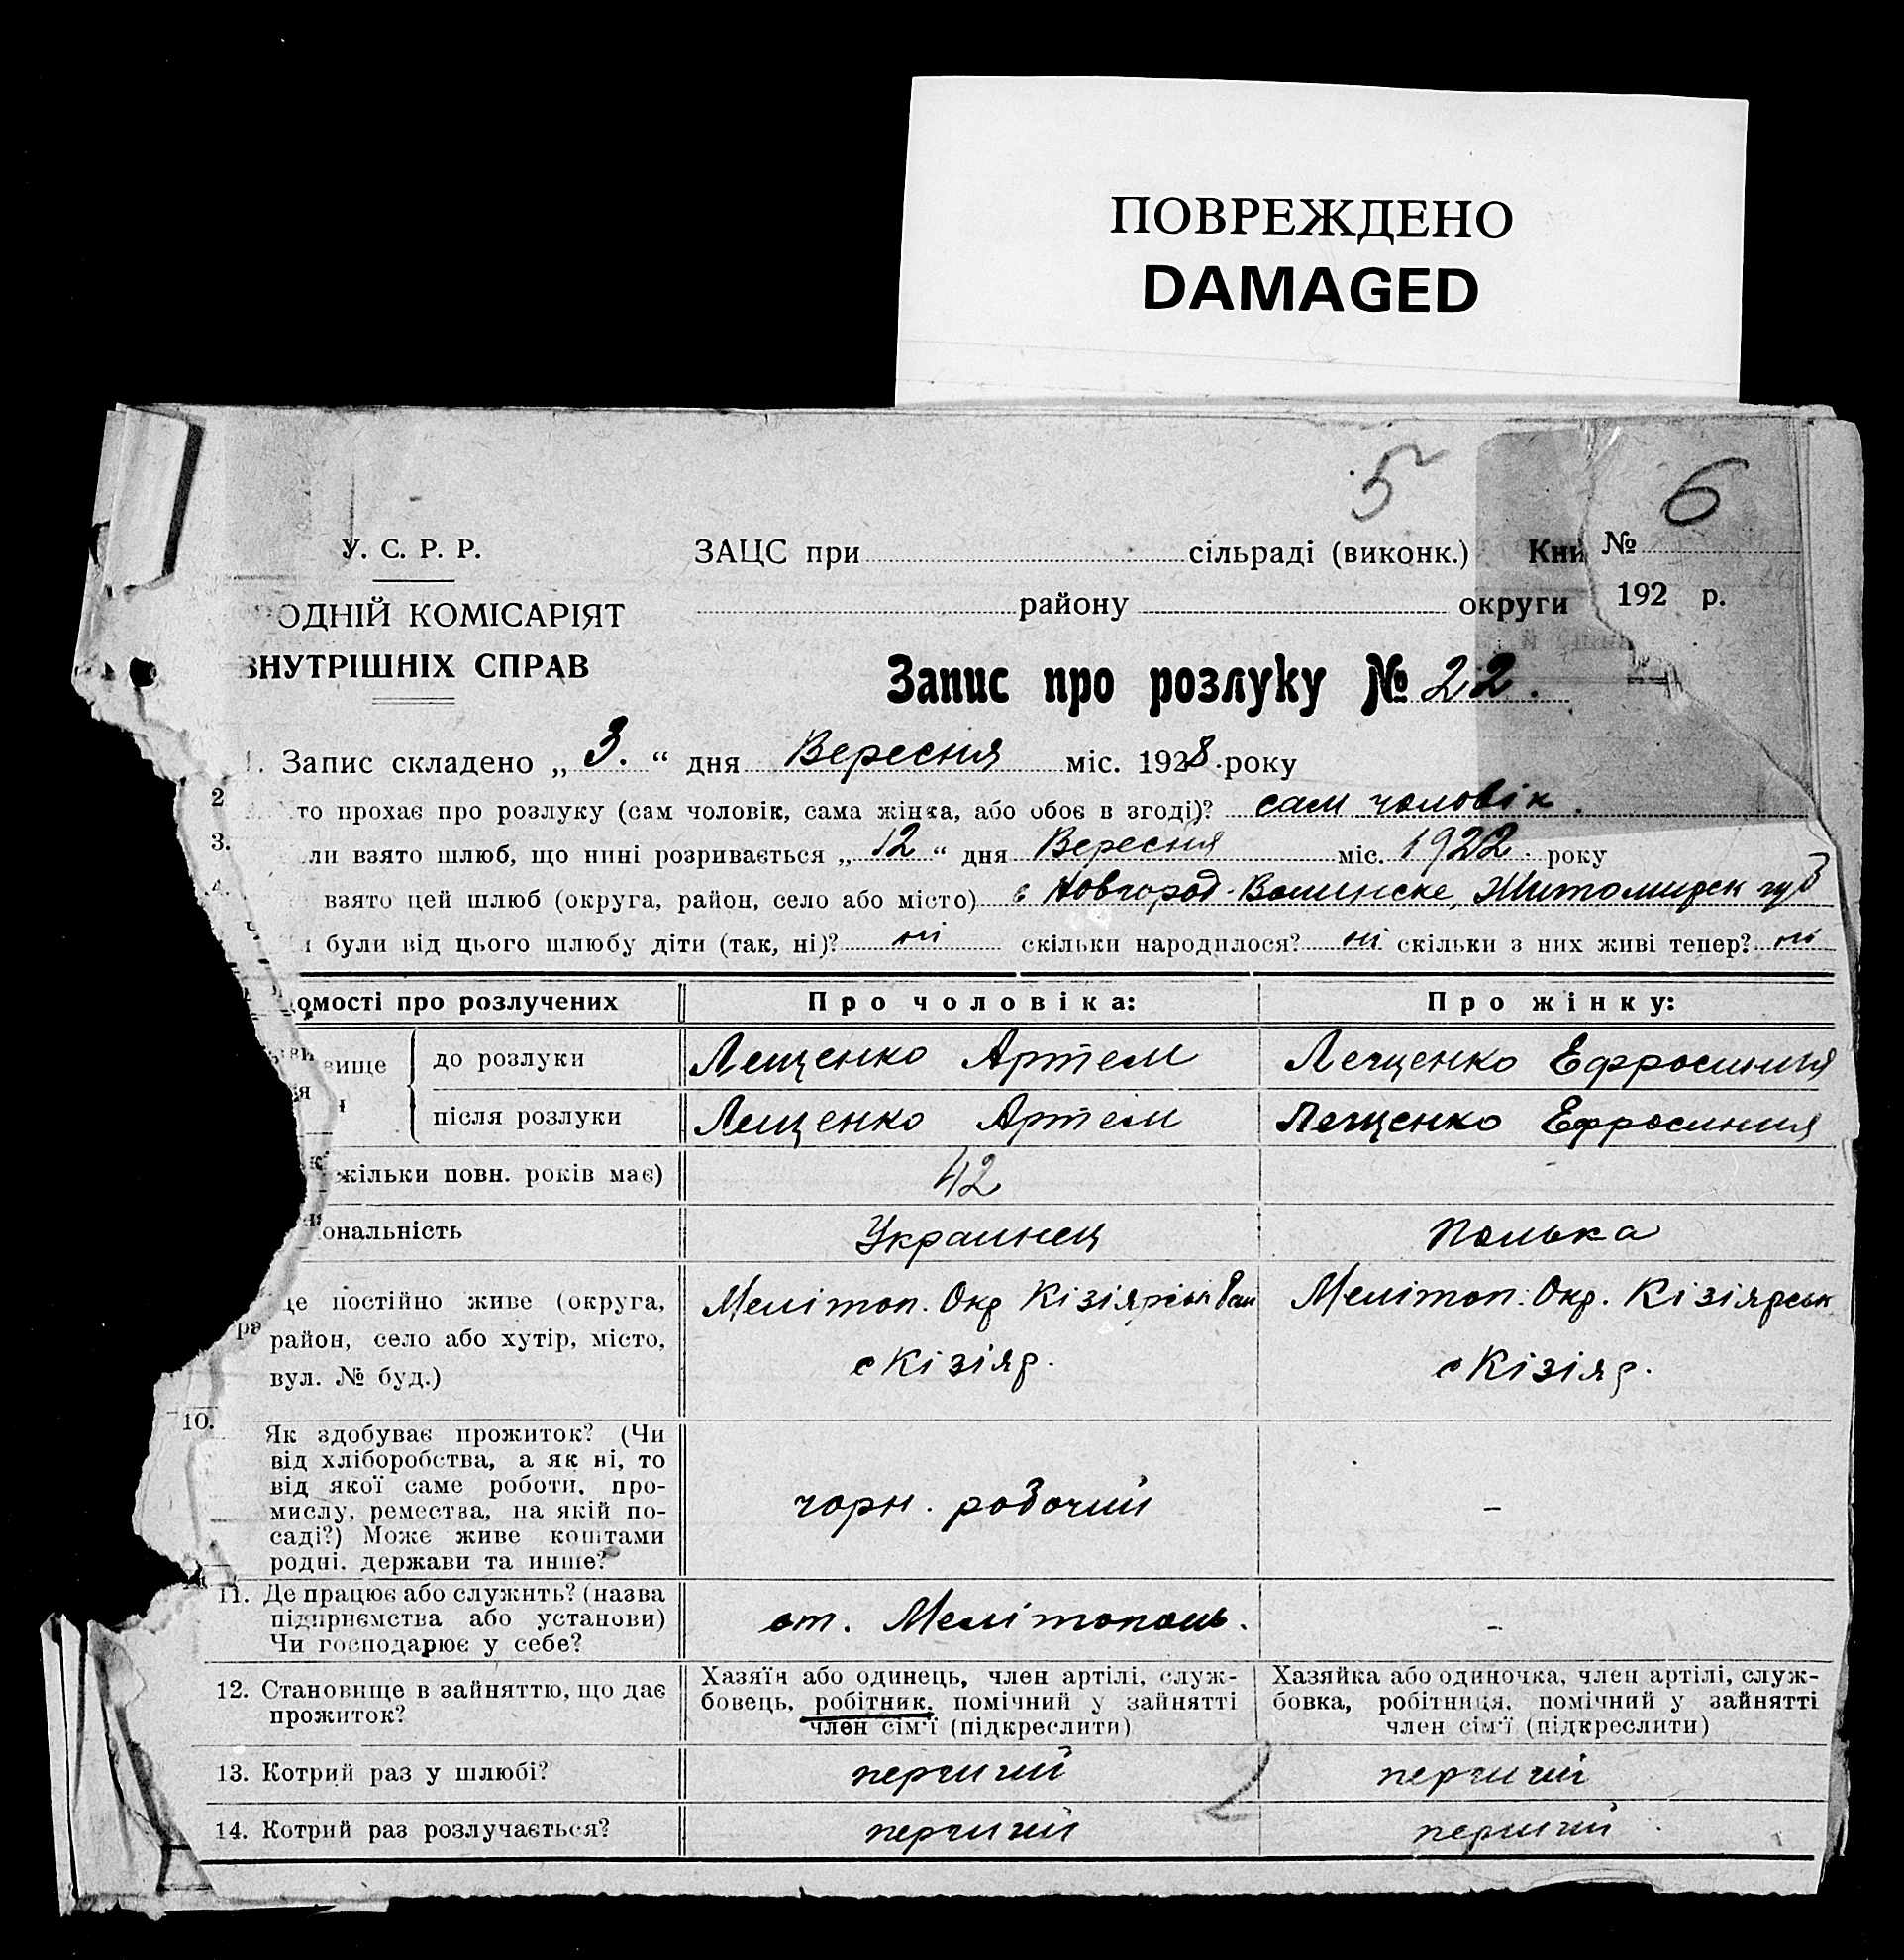 ПОВРЕЖДЕНО
DAMAGED
5 6
У. С. Р. Р. ЗАЦС при сільраді (виконк.) Кни №
району округи 192 р.
ОДНІЙ КОМІСАРІЯТ
ВНУТРІШНІХ СПРАВ
Запис про розлуку № 22.
1. Запис складено „ 3. “ дня Вересня міс. 1928 року
2. то прохає про розлуку (сам чоловік, сама жінка, або обоє в згоді)? сам чоловік.
3. ли взято шлюб, що нині розривається „ 12 “ дня Вересня міс. 1922 року
4. взято цей шлюб (округа, район, село або місто) в Новгород-Волинске, Житомирск губ
и були від цього шлюбу діти (так, ні)? ні скільки народилося? ні скільки з них живі тепер? ні
домості про розлучених Про чоловіка: Про жінку:
вище до розлуки Лещенко Артем Лещенко Ефросиния
після розлуки Лещенко Артем Лещенко Ефросиния
кільки повн. років має) 42
ональність Украинец Полька
це постійно живе (округа, Мелітоп. Окр Кізіярськ Мелітоп. Окр. Кізіярськ
район, село або хутір, місто, с Кізіяр. с Кізіяр.
вул. № буд.)
10. Як здобуває прожиток? (Чи
від хліборобства, а як ні, то
від якої саме роботи, про-
мислу, ремества, на якій по- чорн. робочий –
саді?) Може живе коштами
родні, держави та инше?
11. Де працює або служить? (назва
підприємства або установи) ст. Мелітополь. –
Чи господарює у себе?
12. Становище в зайняттю, що дає прожиток?
Хазяїн або одинець, член артілі, служ-
бовець, робітник, помічний у зайнятті
член сім'ї (підкреслити)
Хазяйка або одиночка, член артілі, служ-
бовка, робітниця, помічний у зайнятті
член сім'ї (підкреслити)
13. Котрий раз у шлюбі? перший перший
2
14. Котрий раз розлучається? перший перший